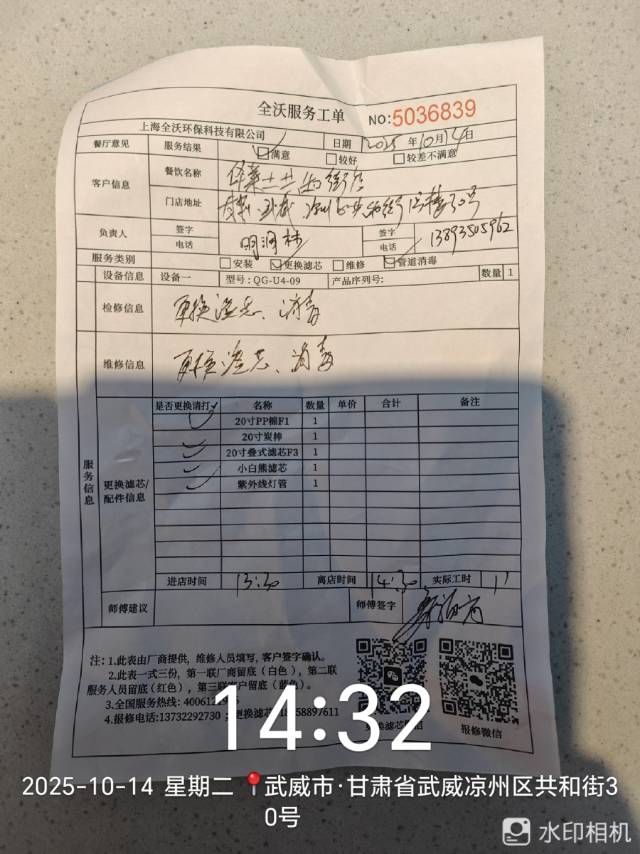 全沃服务工单 NO:5036839
上海全沃环保科技有限公司 日期 2025 年 10 月 14 日
餐厅意见 服务结果 满意 较好 较差不满意
客户信息 餐饮名称
门店地址
负责人 签字 签字
电话 电话 13893505962
服务类别 安装 更换滤芯 维修 管道消毒
服务信息
设备信息 设备一 型号:QG-U4-09 产品序列号: 数量 1
检修信息 更换滤芯、消毒
维修信息 更换滤芯、消毒
更换滤芯/配件信息
是否更换请打✓ 名称 数量 单价 合计 备注
✓ 20寸PP棉F1 1
20寸炭棒 1
✓ 20寸叠式滤芯F3 1
✓ 小白熊滤芯 1
✓ 紫外线灯管 1
进店时间 13:30 离店时间 14:30 实际工时
师傅建议 师傅签字
注:1.此表由厂商提供,维修人员填写,客户签字确认。
2.此表一式三份,第一联厂商留底(白色),第二联
服务人员留底(红色),第三联客户留底(蓝色)。
3.全国服务热线:
4.报修电话:13732292730 ;更换滤芯
报修微信
14:32
2025-10-14 星期二 武威市·甘肃省武威凉州区共和街3
0号
水印相机